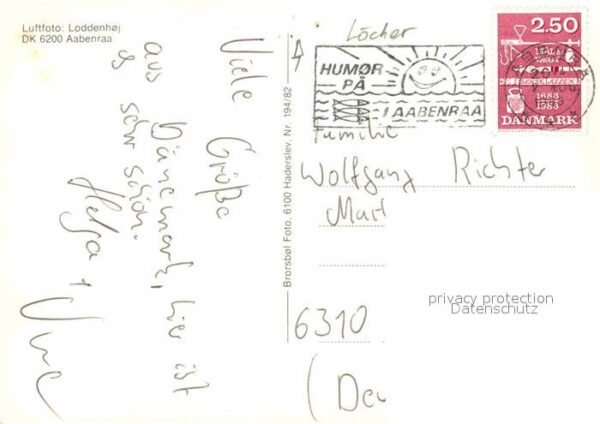 Luftfoto: Loddenhøj
DK 6200 Aabenraa
Viele Grüße
aus Dänemark, hier ist
es sehr schön.
Helga + Uwe
Brorsbøl Foto, 6100 Haderslev, Nr. 194/82
Löcher
HUMØR
PÅ
I AABENRAA
2.50
MÅL OG
VÆGT
1683
1983
DANMARK
Familie
Wolfgang Richter
6310
privacy protection
Datenschutz